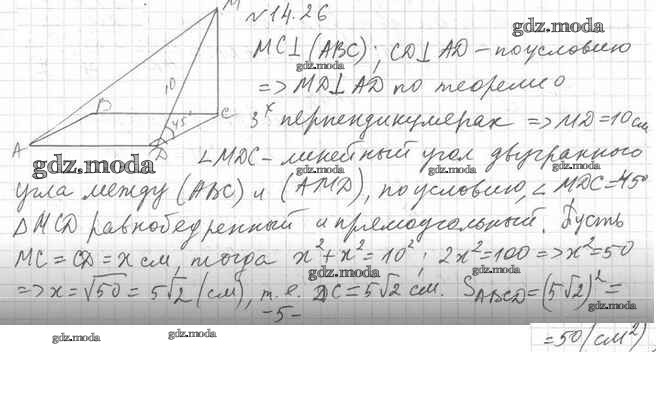 №14.26
gdz.moda
M
MC⊥(ABC); CD⊥AD – по условию
gdz.moda
=> MD⊥AD по теореме о
10
B
C
45°
3х перпендикулярах => MD=10см
A
D
gdz.moda
∠MDC – линейный угол двугранного
gdz.moda gdz.moda
угла между (ABC) и (AMD), по условию, ∠MDC=45°
gdz.moda gdz.moda
△MCD равнобедренный и прямоугольный. Пусть
MC = CD = x см, тогда x²+x²=10²; 2x²=100=>x²=50
gdz.moda gdz.moda
=> x=√50 = 5√2 (см), т.е. DC=5√2 см. S ABCD=(5√2)²=
gdz.moda
-5-
gdz.moda gdz.moda gdz.moda
=50(см²)